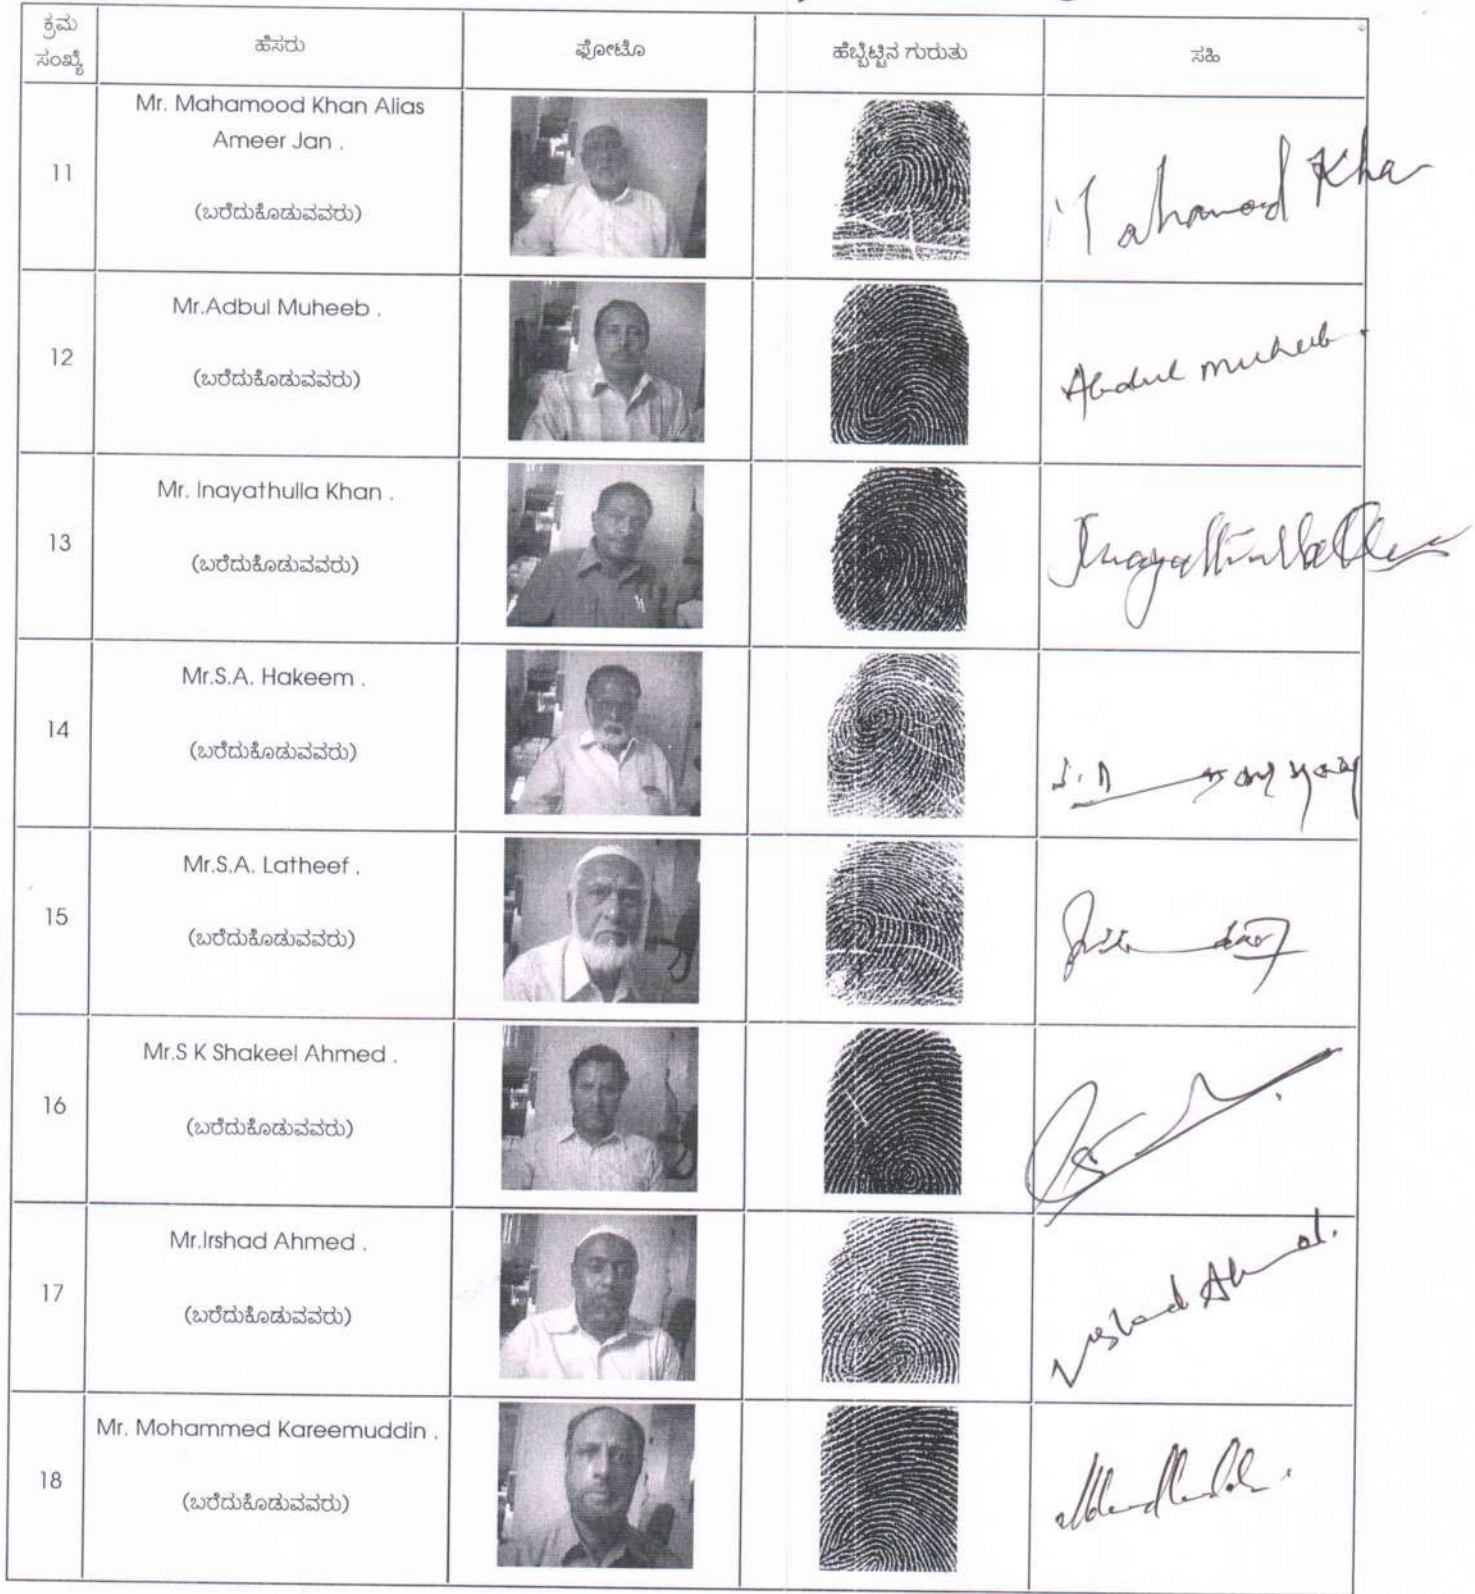 ಕ್ರಮ
ಸಂಖ್ಯೆ
ಹೆಸರು
ಫೋಟೊ
ಹೆಬ್ಬೆಟ್ಟಿನ ಗುರುತು
ಸಹಿ
11
Mr. Mahamood Khan Alias
Ameer Jan .
(ಬರೆದುಕೊಡುವವರು)
Mahamood Kha
12
Mr.Adbul Muheeb .
(ಬರೆದುಕೊಡುವವರು)
Abdul muheeb .
13
Mr. Inayathulla Khan .
(ಬರೆದುಕೊಡುವವರು)
14
Mr.S.A. Hakeem .
(ಬರೆದುಕೊಡುವವರು)
15
Mr.S.A. Latheef .
(ಬರೆದುಕೊಡುವವರು)
16
Mr.S K Shakeel Ahmed .
(ಬರೆದುಕೊಡುವವರು)
17
Mr.Irshad Ahmed .
(ಬರೆದುಕೊಡುವವರು)
Irshad Ahmed.
18
Mr. Mohammed Kareemuddin .
(ಬರೆದುಕೊಡುವವರು)